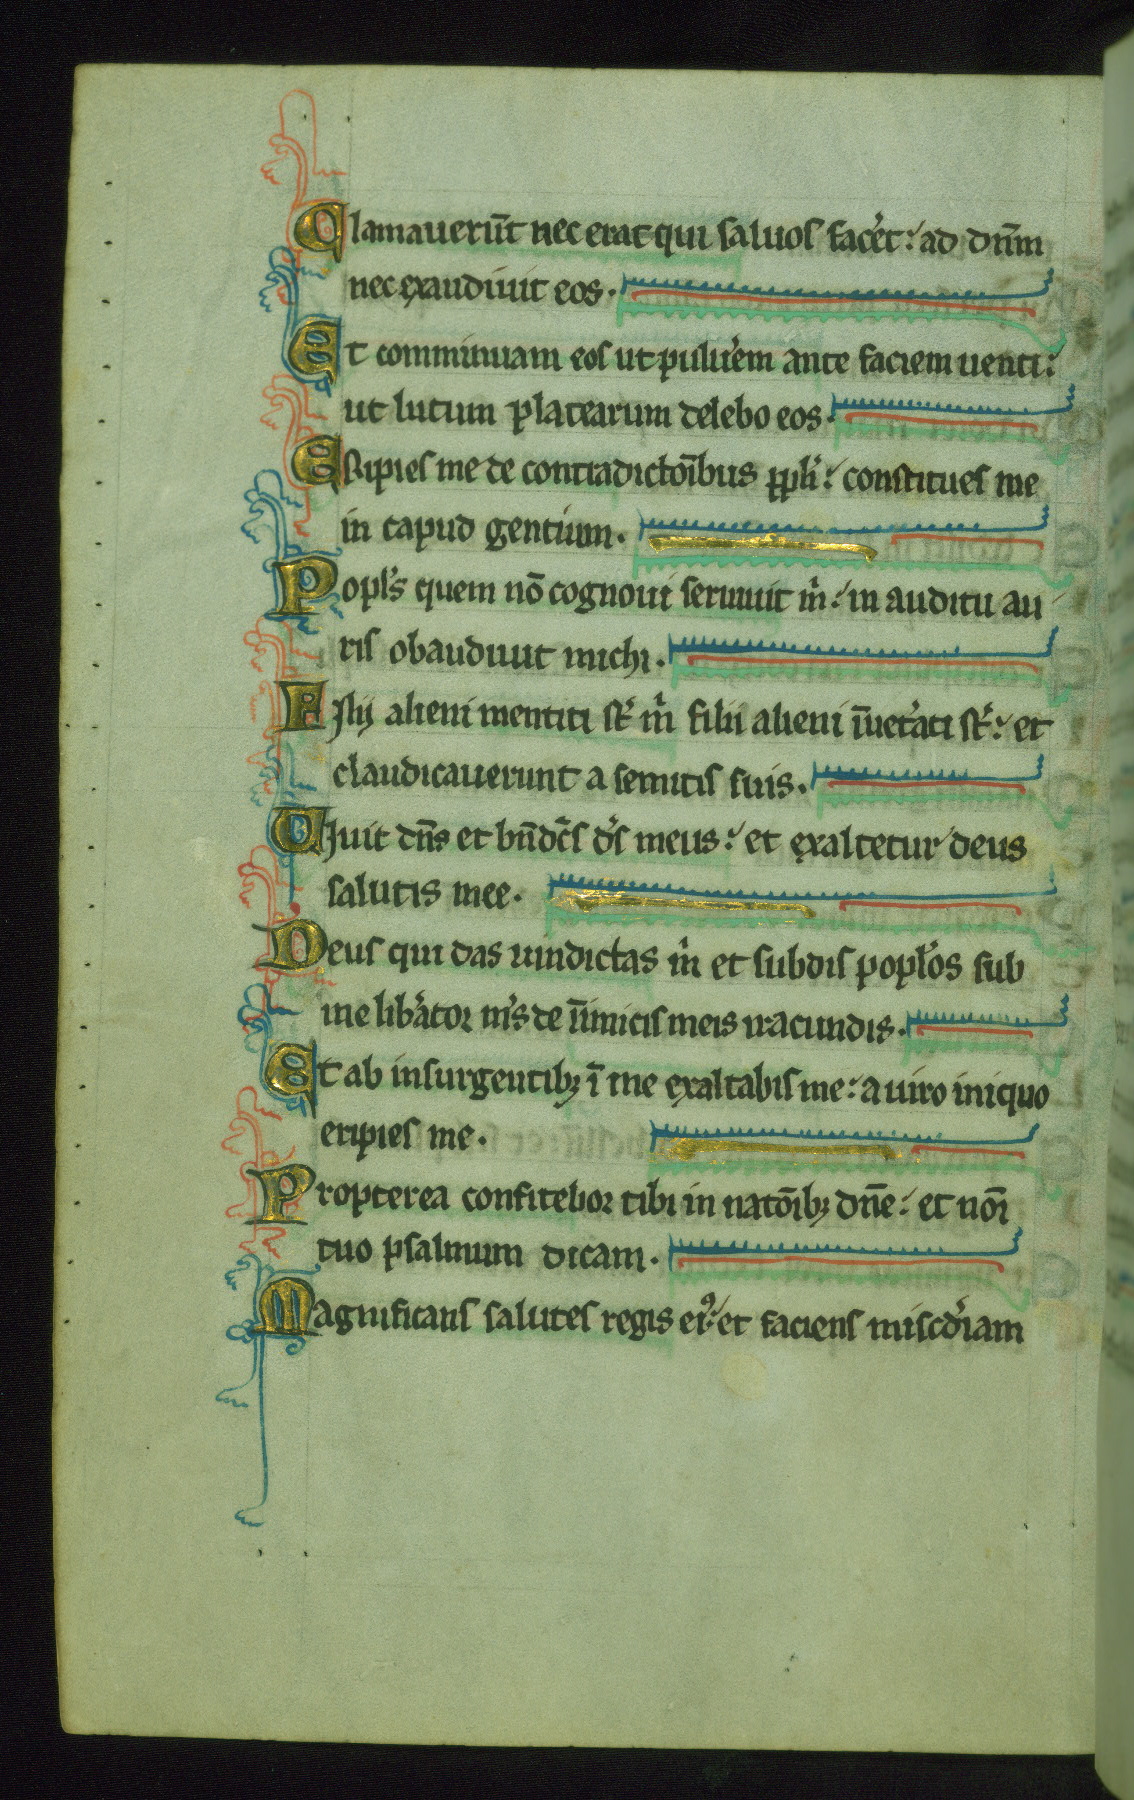 Clamauerūt nec erat qui saluos fac̉et: ad dn̄m
nec exaudiuit eos.
Et comminuam eos ut puluẻm ante faciem uenti:
ut lutum platearum delebo eos.
Eripies me de contradictōibus ppl̓i: constitues me
in capud gentium.
Popl̓s quem nō cognoui seruiuit m̓: in auditu au
ris obaudiuit michi.
Filij alieni mentiti st̓ m̓ filii alieni īuet̓ati st̓: et
claudicauerunt a semitis suis.
Viuit dn̄s et bn̄dc̄s d̓s meus: et exaltetur deus
salutis mee.
Deus qui das uindictas m̓ et subdis popl̓os sub
me lib̓ator m̓s de īimicis meis iracundis.
Et ab insurgentibꝫ ī me exaltabis me: a uiro iniquo
eripies me.
Propterea confitebor tibi in natōibꝫ dn̄e: et nōi
tuo psalmum dicam.
Magnificans salutes regis eiꝰ: et faciens misc̓diam